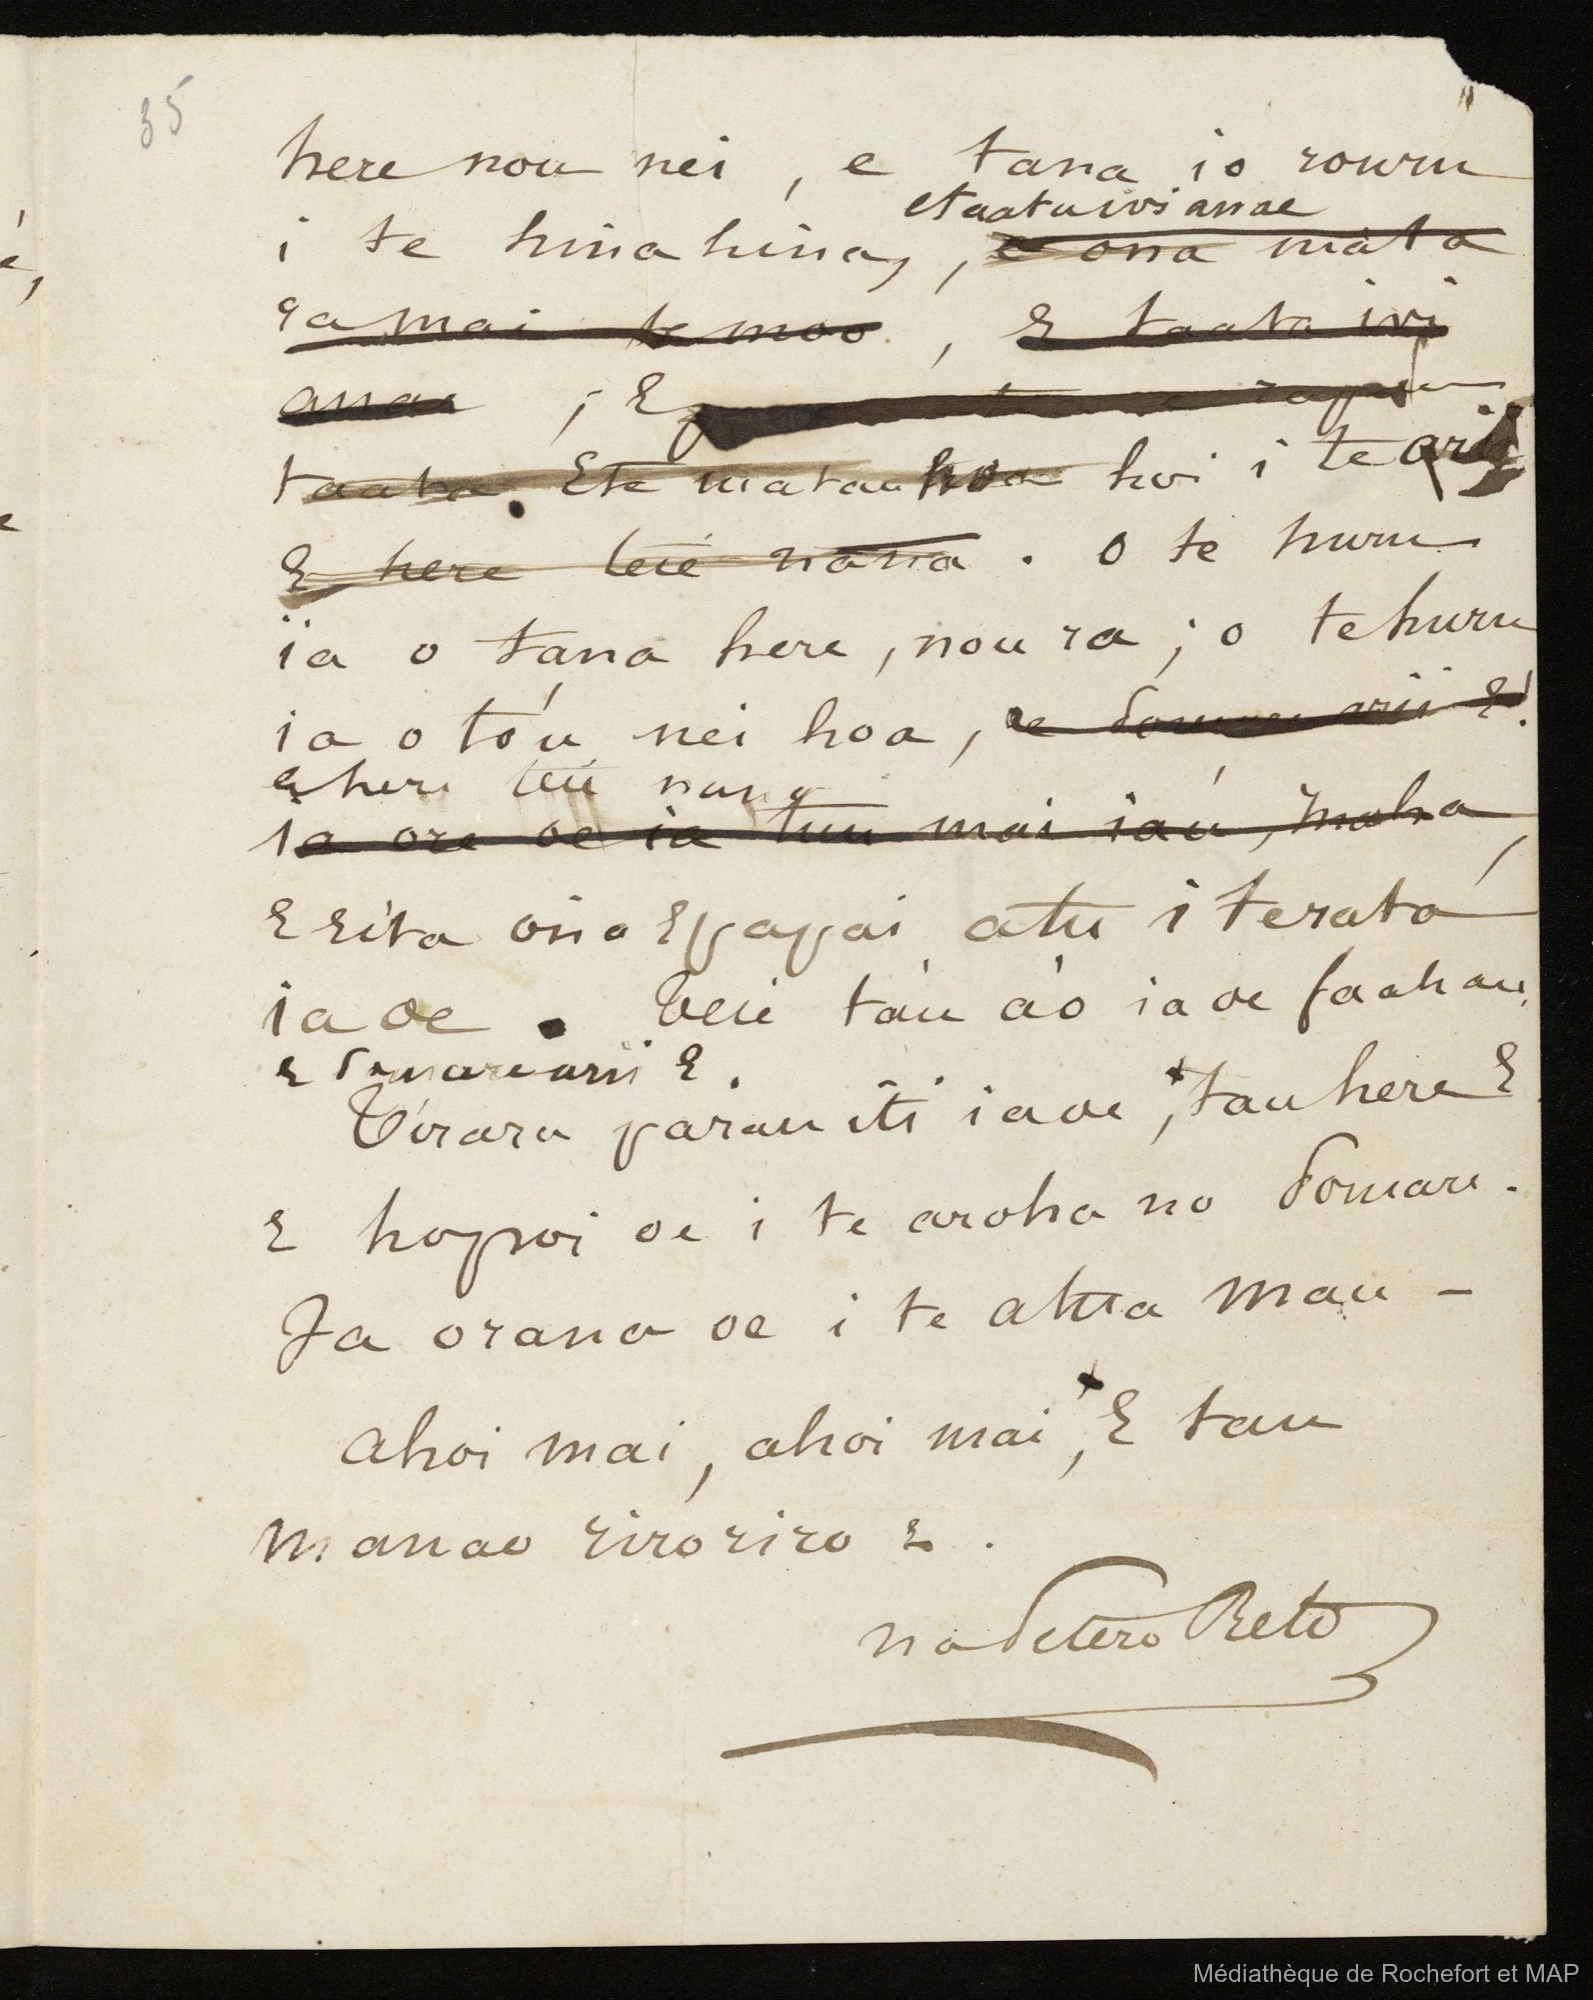 35
here nou nei, e tana io rouru
etaatuivi anae
i te hinahina, , e ona mata
ra mai te moo, E taata ivi
anae ; E
taata. Ete matau hoa hoi i te arii
E here teie nana. O te huru
ia o tana here, nou ra ; o te huru
ia o to'u nei hoa, e Pomare arii E!
e here teie nana
ia ore oe ia tuu mai iau, maha,
E Eita oia E papai atu i te rata
ia oe. Teie ta'u a'o ia oe faahau,
E Pomare arii E.
Te parau iti ia oe, tau here E
E hopoi oe i te aroha no Pomare.
Ia orana oe i te atua mau -
ahoi mai, ahoi mai, E tau
manao riroriro E.
na Petero Reto
Médiathèque de Rochefort et MAP